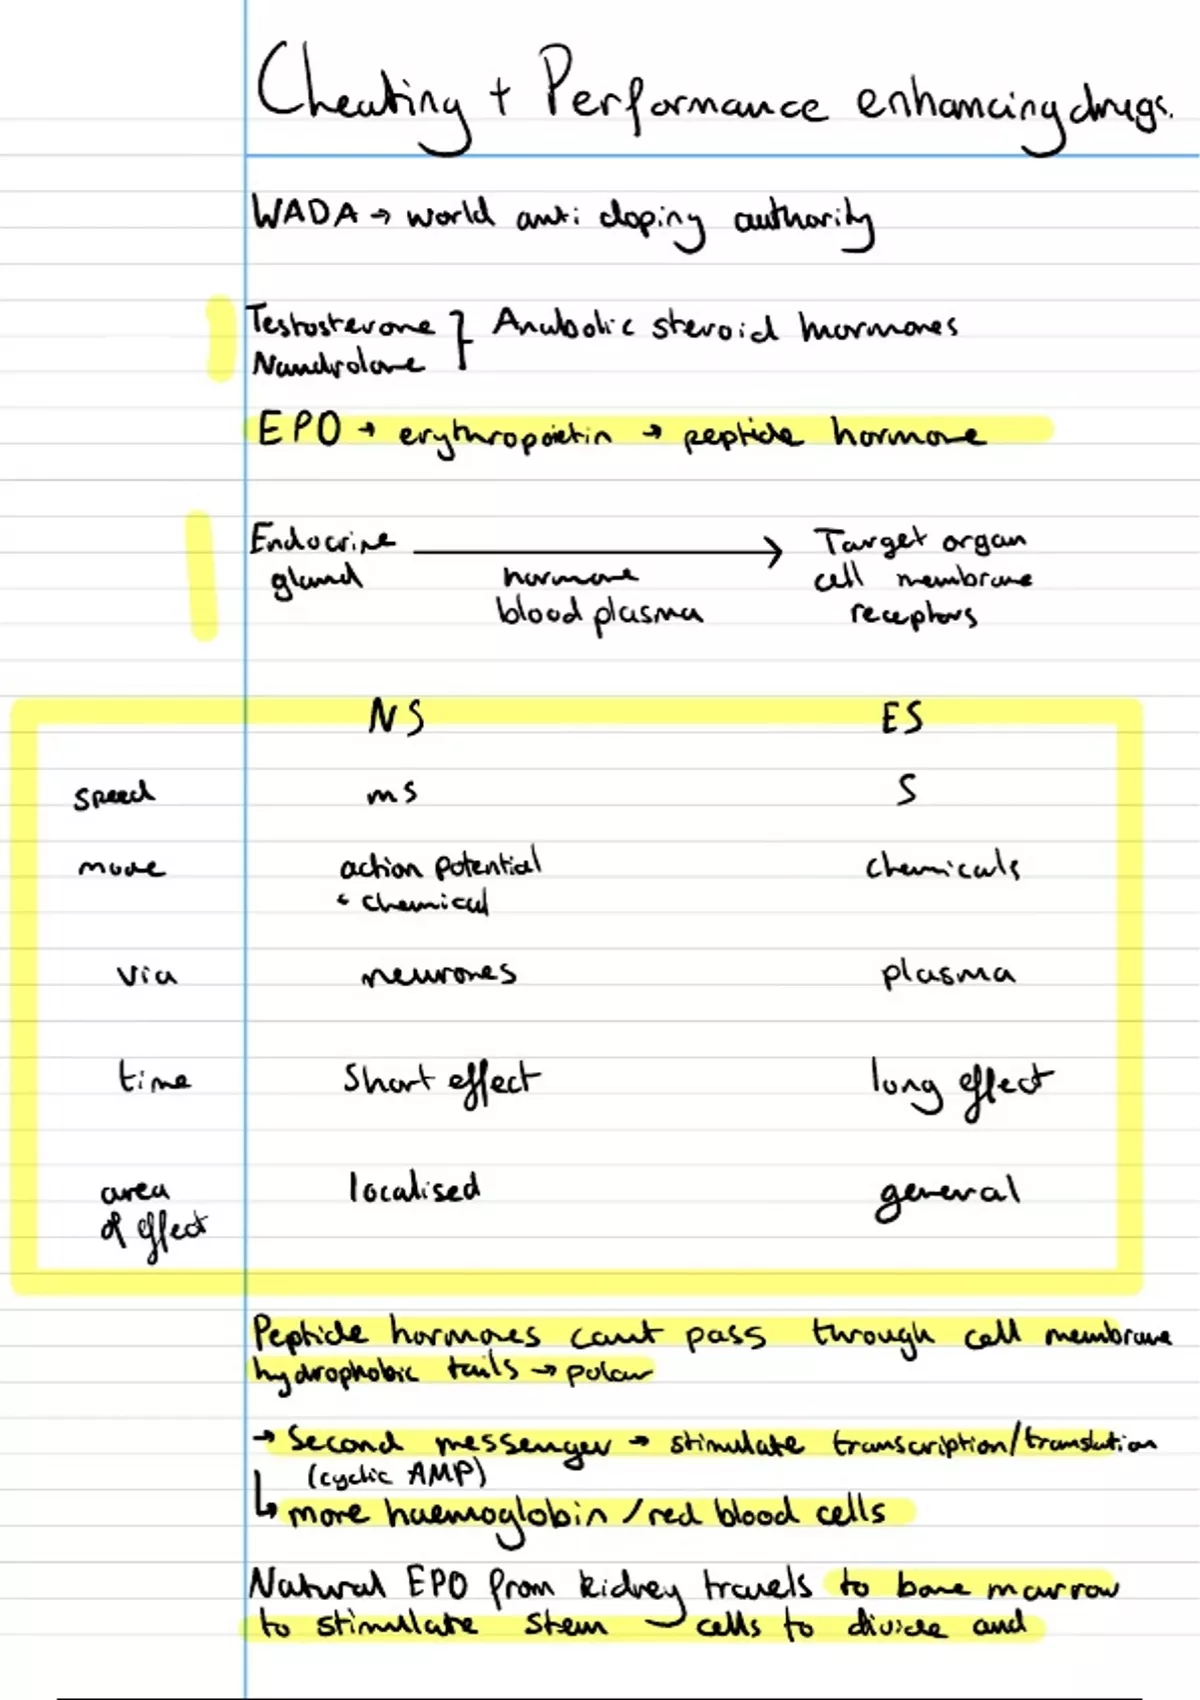 Cheating + Performance enhancing drugs.
WADA → world anti doping authority
Testosterone } Anabolic steroid hormones
Nandrolone
EPO → erythropoietin → peptide hormone
Endocrine → Target organ
gland hormone cell membrane
blood plasma receptors
NS ES
speed ms s
move action potential chemicals
+ chemical
via neurones plasma
time short effect long effect
area localised general
of effect
Peptide hormones cant pass through cell membrane
hydrophobic tails → polar
→ Second messenger → stimulate transcription/translation
(cyclic AMP)
↳ more haemoglobin/red blood cells
Natural EPO from kidney travels to bone marrow
to stimulate stem cells to divide and